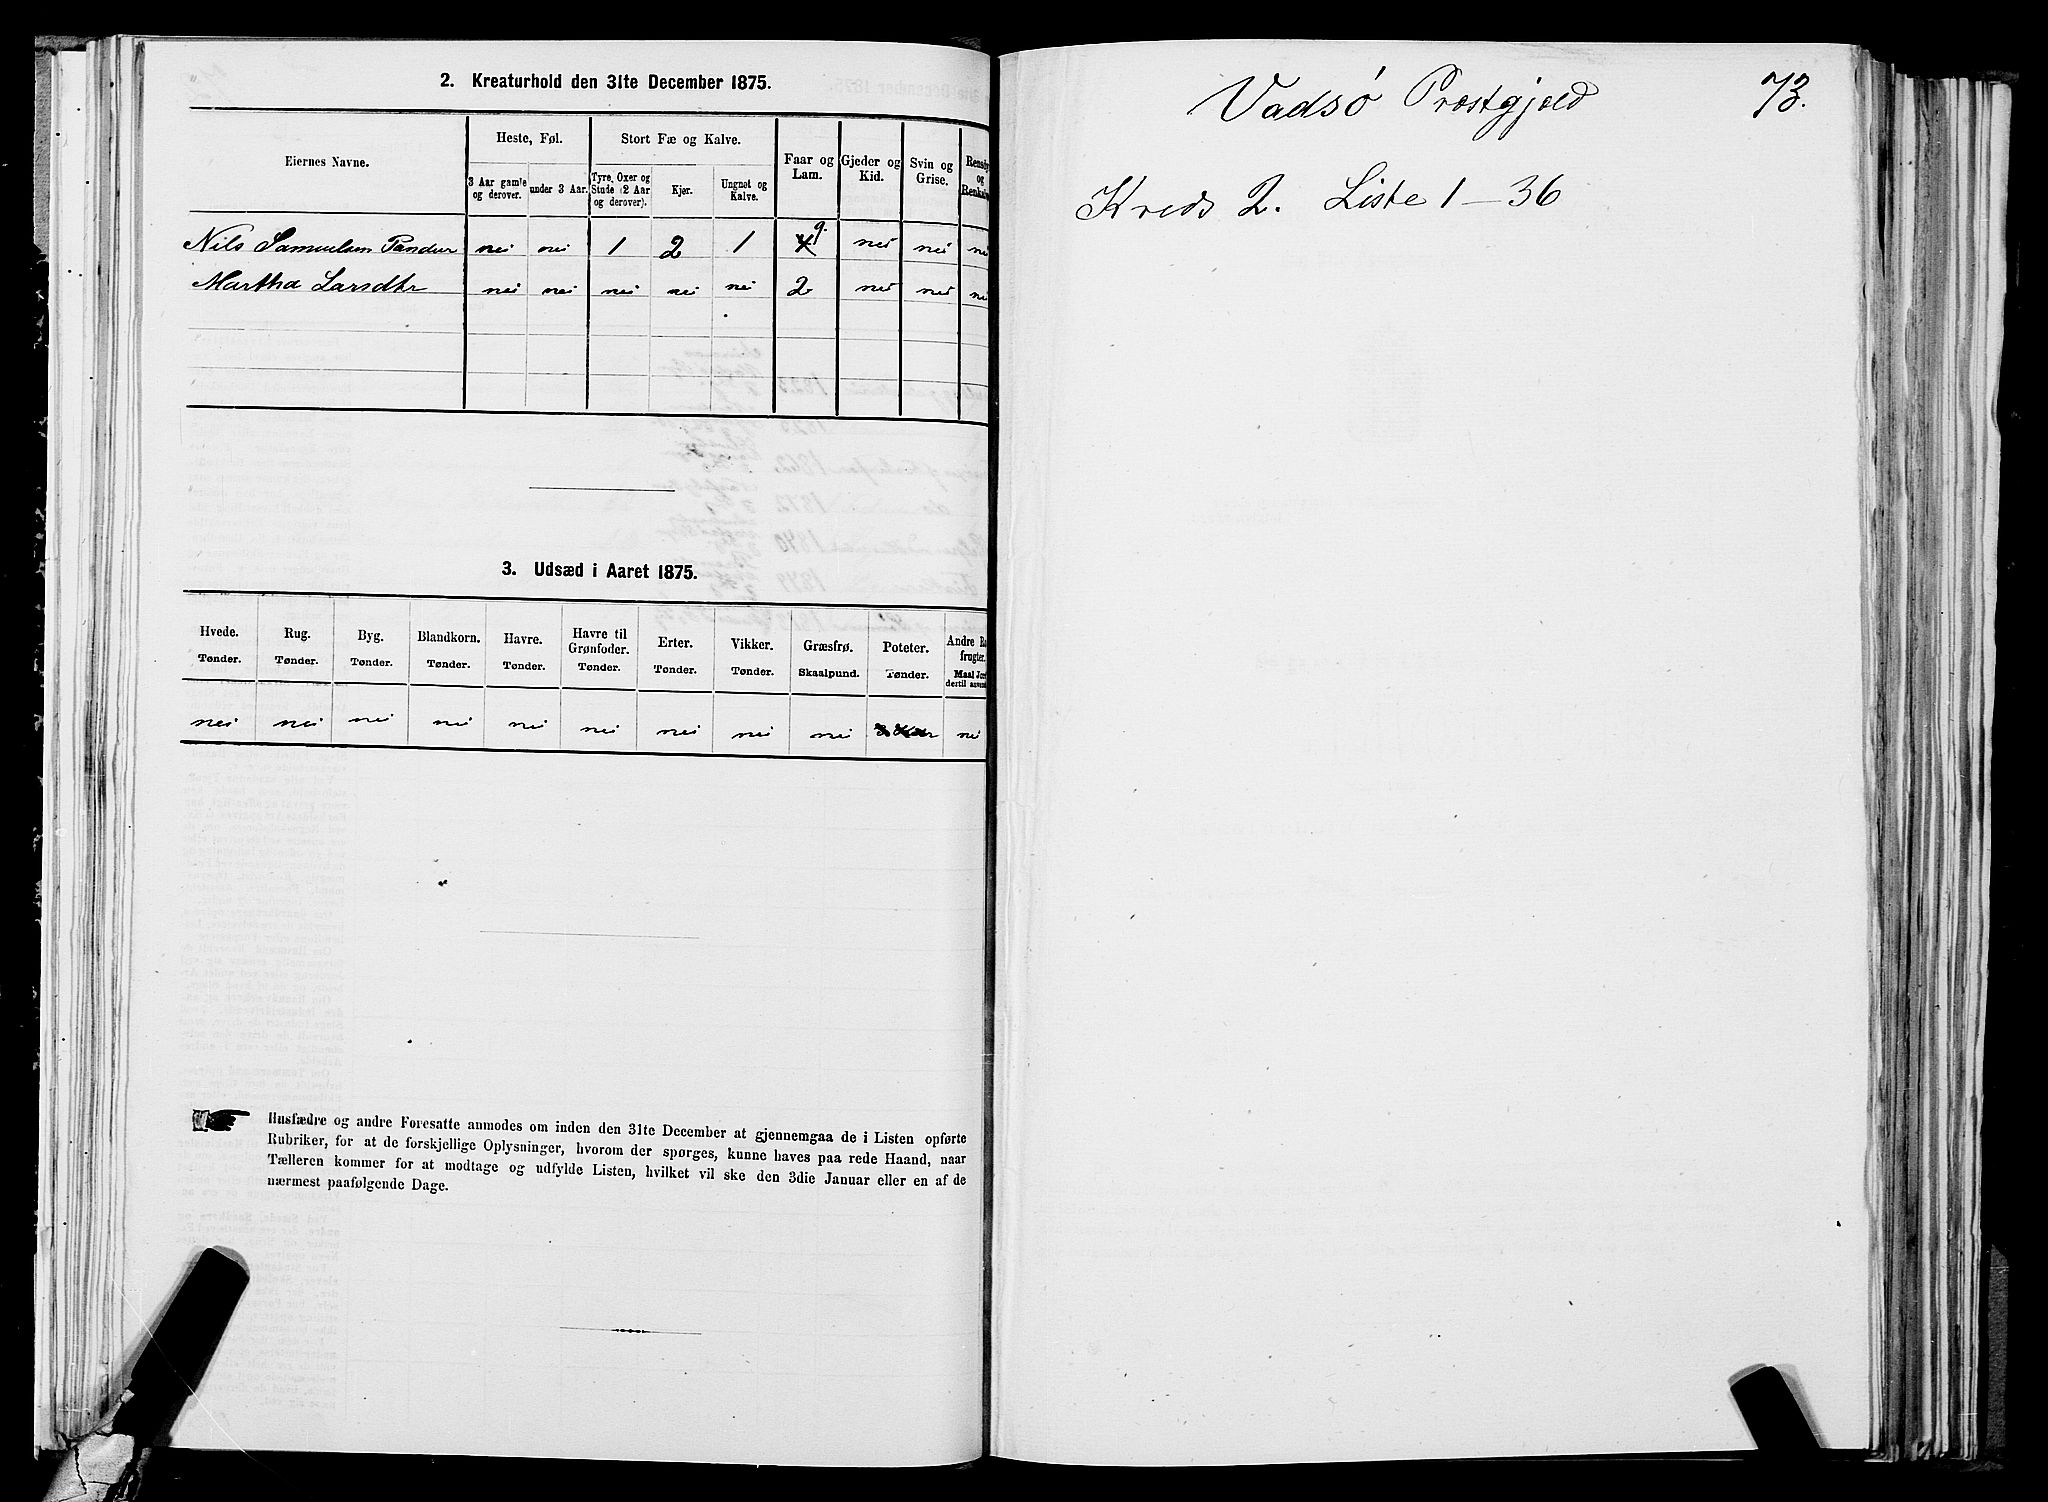 2. Kreaturhold den 31te December 1875.
Eiernes Navne.
Heste, Føl.
Stort Fæ og Kalve.
3 Aar gamle og derover.
under 3 Aar.
Tyre, Oxer og Stude (2 Aar og derover).
Kjør.
Ungnøt og Kalve.
Faar og Lam.
Gjeder og Kid.
Svin og Grise.
Rensdyr og Renkalve
Nils Samuelsen Pandur nei nei 1 2 1 9 nei nei nei
Martha Larsdtr nei nei nei nei nei 2 nei nei nei
3. Udsæd i Aaret 1875.
Hvede. Rug. Byg. Blandkorn. Havre. Havre til Grønfoder. Erter. Vikker. Græsfrø. Poteter. Andre Ro
frugter.
Tønder. Tønder. Tønder. Tønder. Tønder. Tønder. Tønder. Tønder. Skaalpund. Tønder. Maal Jor
dertil anvend
nei nei nei nei nei nei nei nei nei nei
Husfædre og andre Foresatte anmodes om inden den 31te December at gjennemgaa de i Listen opførte
Rubriker, for at de forskjellige Oplysninger, hvorom der spørges, kunne haves paa rede Haand, naar
Tælleren kommer for at modtage og udfylde Listen, hvilket vil ske den 3die Januar eller en af de
nærmest paafølgende Dage.
Vadsø Præstgjeld 73.
Kreds 2. Liste 1-36